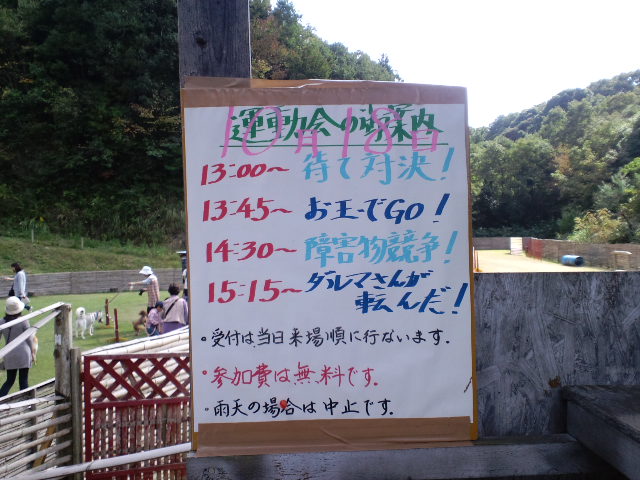 運動会の御案内
10月18日
13:00〜 待て対決!
13:45〜 お玉でGO!
14:30〜 障害物競争!
15:15〜 ダルマさんが
転んだ!
・受付は当日来場順に行ないます.
・参加費は無料です.
・雨天の場合は中止です.